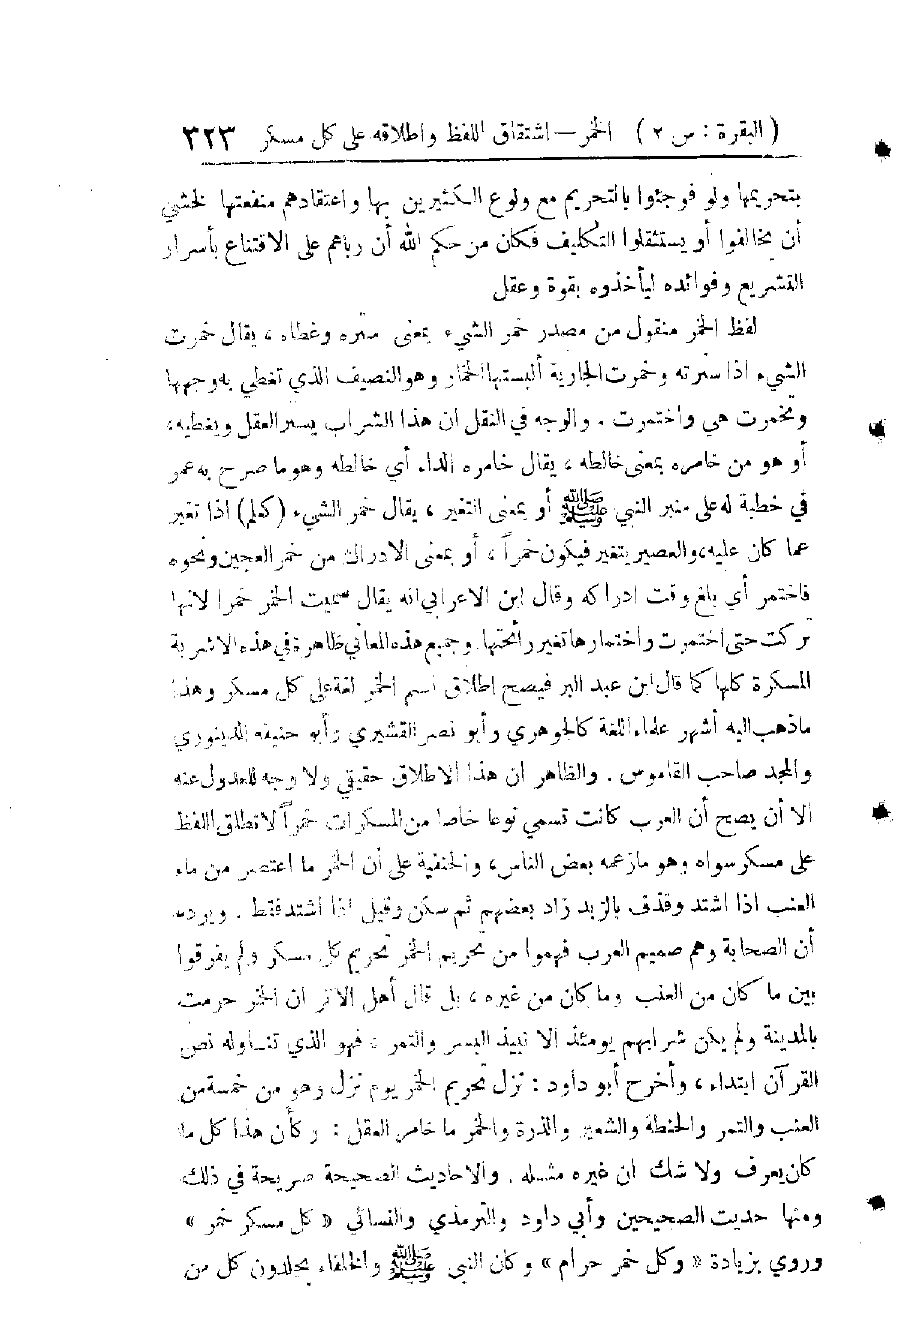 ( البقرة : س ٢ ) الخمر — اشتقاق اللفظ واطلاقه على كل مسكر ٣٢٣
بتحريمها ولو فوجئوا بالتحريم مع ولوع الكثيرين بها واعتقادهم منفعتها لخشي
أن يخالفوا أو يستثقلوا التكليف فكان من حكم الله أن رباهم على الاقتناع بأسرار
التشريع وفوائده ليأخذوه بقوة وعقل
لفظ الخمر منقول من مصدر خمر الشيء بمعنى ستره وغطاه ، يقال خمرت
الشيء اذا سترته وخمرت الجارية ألبستها الخمار وهو النصيف الذي تغطي به وجهها
وتخمرت هي واختمرت . والوجه في النقل ان هذا الشراب يستر العقل ويغطيه،
أو هو من خامره بمعنى خالطه ، يقال خامره الداء أي خالطه وهو ما صرح به عمر
في خطبة له على منبر النبي ﷺ أو بمعنى التغير ، يقال خمر الشيء ( كعلم ) اذا تغير
عما كان عليه، والعصير يتغير فيكون خمراً ، أو بمعنى الادراك من خمر العجين ونحوه
فاختمر أي بلغ وقت ادراكه وقال ابن الاعرابي انه يقال سميت الخمر خمرا لانها
تركت حتى اختمرت واختمارها تغير رائحتها. وجميع هذه المعاني ظاهرة في هذه الاشربة
المسكرة كلها كما قال ابن عبد البر فيصح اطلاق اسم الخمر لغة على كل مسكر وهذا
ماذهب اليه أشهر علماء اللغة كالجوهري وأبو نصر القشيري وأبو حنيفة الدينوري
والمجد صاحب القاموس . والظاهر ان هذا الاطلاق حقيقي ولا وجه للعدول عنه
الا أن يصح أن العرب كانت تسمي نوعا خاصا من المسكرات خمراً لا تطلق اللفظ
على مسكر سواه وهو مازعمه بعض الناس، والحنفية على أن الخمر ما اعتصر من ماء
العنب اذا اشتد وقذف بالزبد زاد بعضهم ثم سكن وقيل اذا اشتد فقط . ويرده
أن الصحابة وهم صميم العرب فهموا من تحريم الخمر تحريم كل مسكر ولم يفرقوا
بين ما كان من العنب وما كان من غيره ، بل قال أهل الاثر ان الخمر حرمت
بالمدينة ولم يكن شرابهم يومئذ الا نبيذ البسر والتمر ، فهو الذي تناوله نص
القرآن ابتداء ، وأخرج أبو داود : نزل تحريم الخمر يوم نزل وهو من خمسة من
العنب والتمر والحنطة والشعير والذرة والخمر ما خامر العقل : وكأن هذا كل ما
كان يعرف ولا شك ان غيره مثله . والاحاديث الصحيحة صريحة في ذلك
ومنها حديث الصحيحين وأبي داود والترمذي والنسائي « كل مسكر خمر »
وروي بزيادة « وكل خمر حرام » وكان النبي ﷺ والخلفاء يجلدون كل من